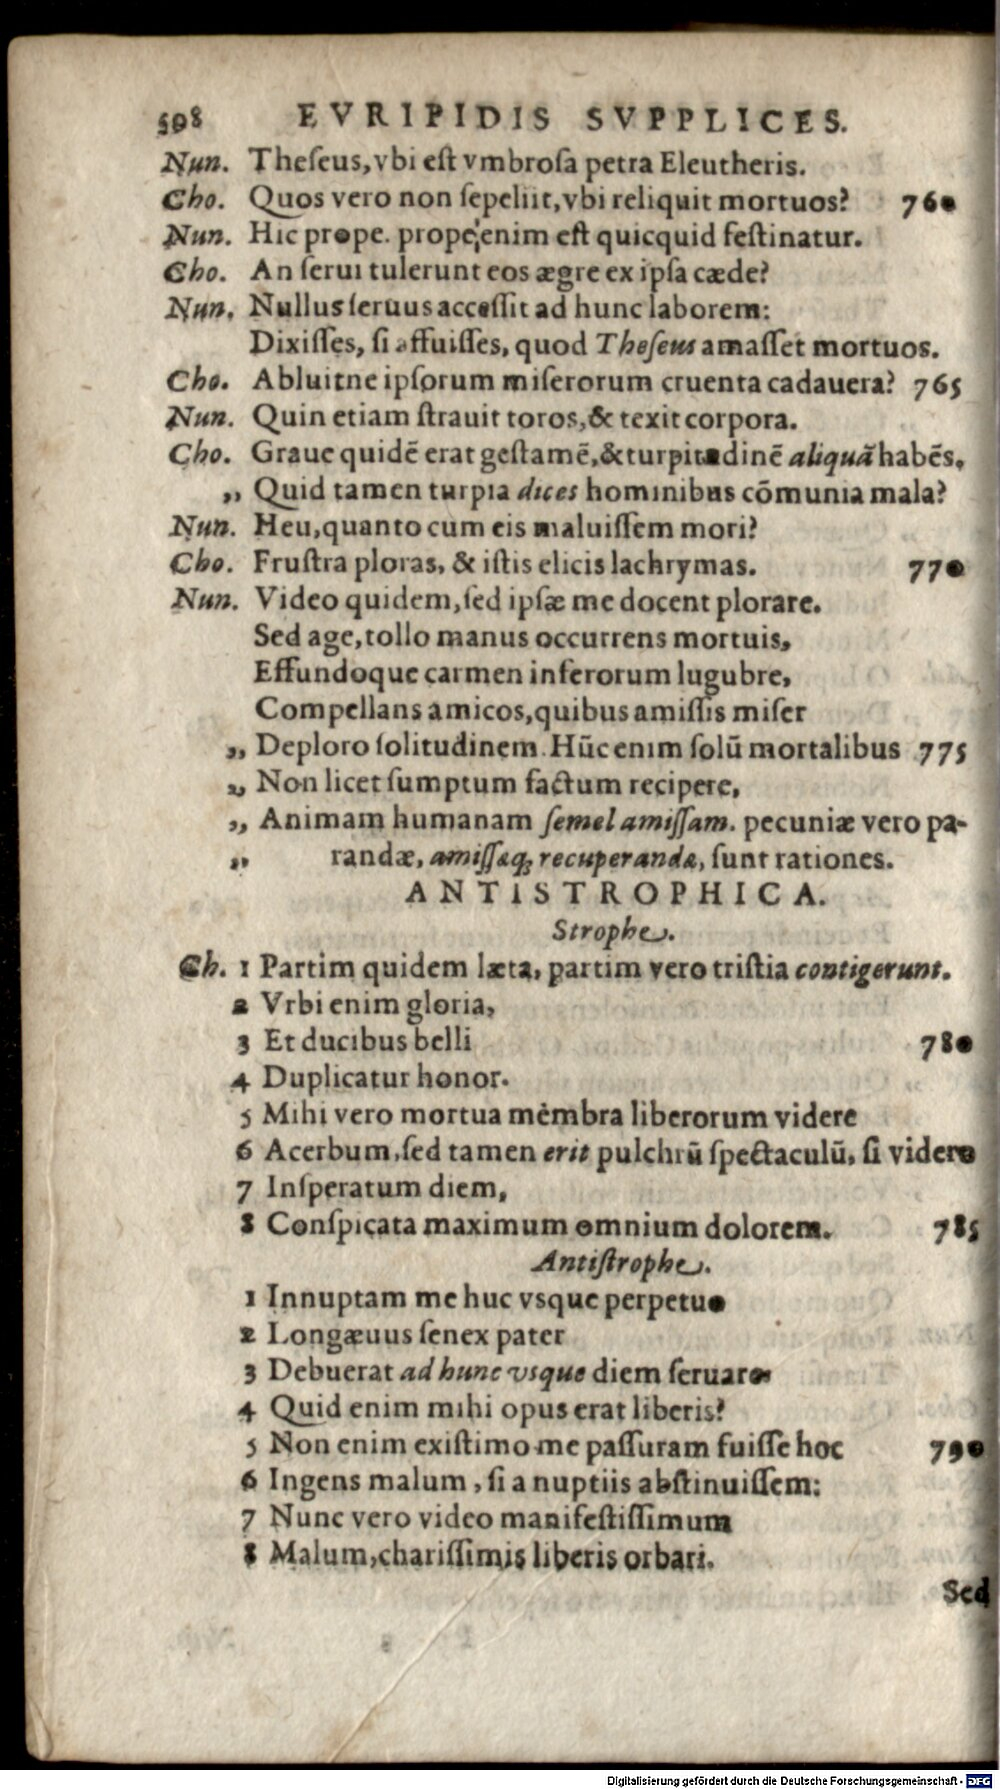 598 EVRIPIDIS SVPPLICES.
Nun. Theſeus, vbi eſt vmbroſa petra Eleutheris.
Cho. Quos vero non ſepeliit, vbi reliquit mortuos? 760
Nun. Hic prope. prope enim eſt quicquid feſtinatur.
Cho. An ſerui tulerunt eos ægre ex ipſa cæde?
Nun. Nullus ſeruus acceſſit ad hunc laborem:
Dixiſſes, ſi affuiſſes, quod Theſeus amaſſet mortuos.
Cho. Abluitne ipſorum miſerorum cruenta cadauera? 765
Nun. Quin etiam ſtrauit toros, & texit corpora.
Cho. Graue quidē erat geſtamē, & turpitudinē aliquā habēs,
„ Quid tamen turpia dices hominibus cōmunia mala?
Nun. Heu, quanto cum eis maluiſſem mori?
Cho. Fruſtra ploras, & iſtis elicis lachrymas. 770
Nun. Video quidem, ſed ipſæ me docent plorare.
Sed age, tollo manus occurrens mortuis,
Effundoque carmen inferorum lugubre,
Compellans amicos, quibus amiſſis miſer
„ Deploro ſolitudinem. Hūc enim ſolū mortalibus 775
„ Non licet ſumptum factum recipere,
„ Animam humanam ſemel amiſſam. pecuniæ vero pa-
„ randæ, amiſſæq; recuperandæ, ſunt rationes.
ANTISTROPHICA.
Strophe.
Ch. 1 Partim quidem læta, partim vero triſtia contigerunt.
2 Vrbi enim gloria,
3 Et ducibus belli 780
4 Duplicatur honor.
5 Mihi vero mortua membra liberorum videre
6 Acerbum, ſed tamen erit pulchrū ſpectaculū, ſi videro
7 Inſperatum diem,
8 Conſpicata maximum omnium dolorem. 785
Antiſtrophe.
1 Innuptam me huc vsque perpetuo
2 Longæuus ſenex pater
3 Debuerat ad hunc vsque diem ſeruare
4 Quid enim mihi opus erat liberis?
5 Non enim existimo me paſſuram fuiſſe hoc 790
6 Ingens malum, ſi a nuptiis abſtinuiſſem:
7 Nunc vero video manifeſtiſſimum
8 Malum, chariſſimis liberis orbari.
Sed
Digitalisierung gefördert durch die Deutsche Forschungsgemeinschaft - DFG